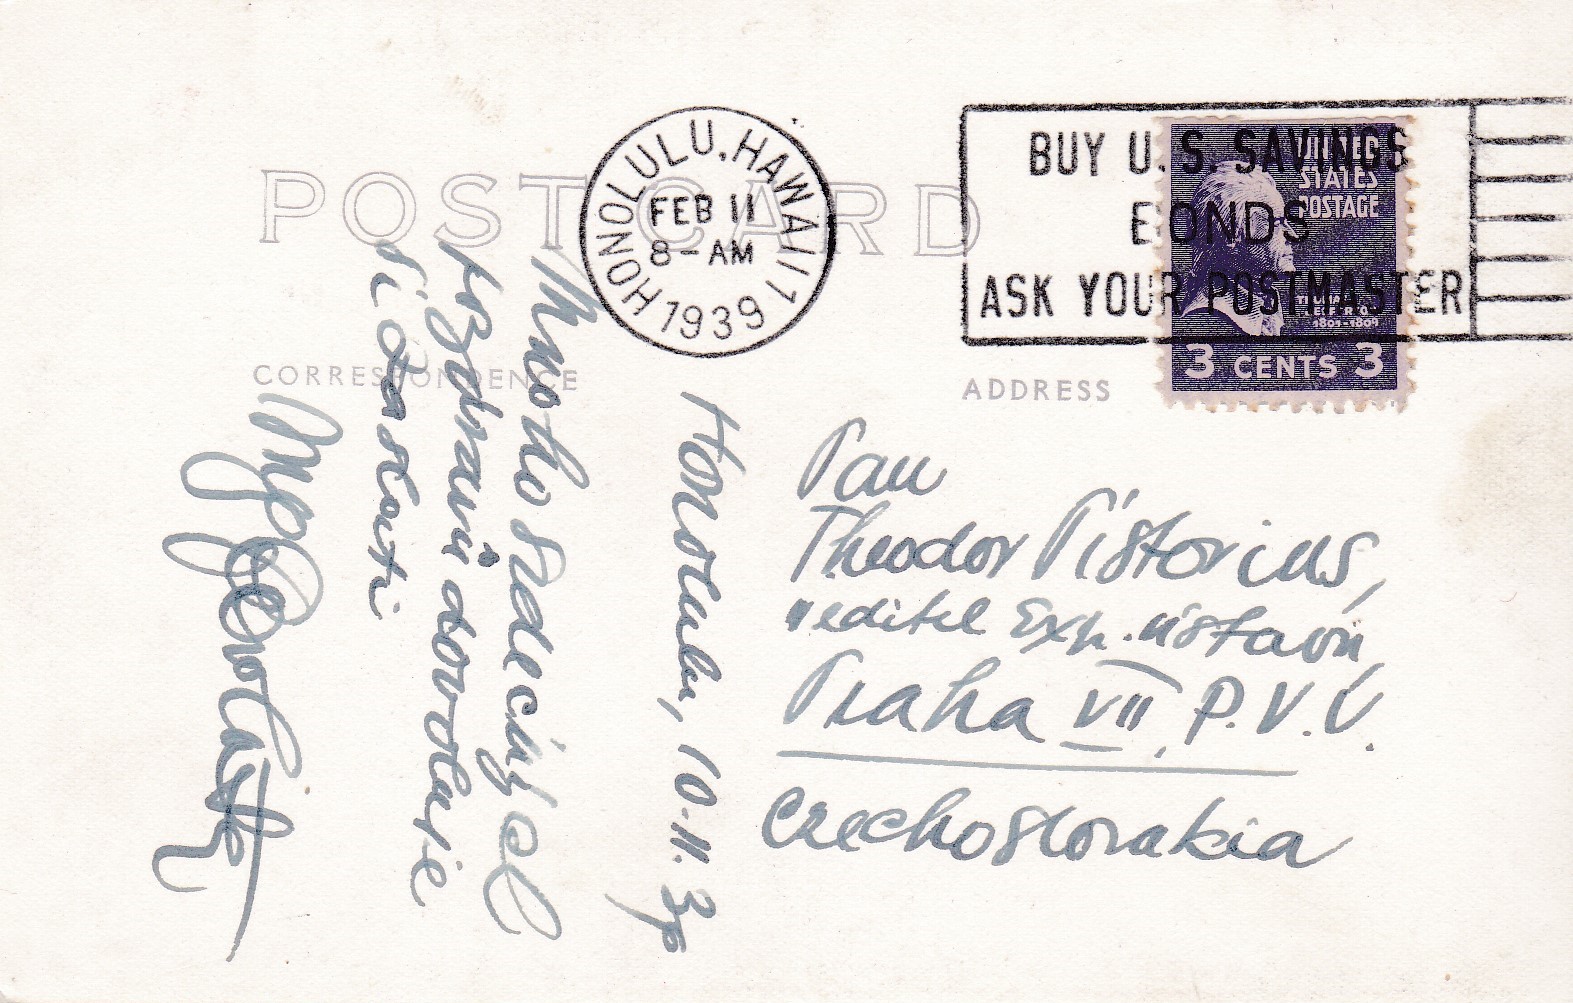 POST CARD
CORRESPONDENCE
ADDRESS
HONOLULU, HAWAII 1
FEB 11
8-AM
1939
BUY U.S. SAVINGS
BONDS
ASK YOUR POSTMASTER
UNITED
STATES
POSTAGE
THOMAS
JEFFERSON
1801-1809
3 CENTS 3
Honolulu, 10.II.39
Mnoho srdečných
pozdravů
Pan
Theodor Pistorius,
ředitel Exp. ústavu
Praha VII, P.V.V.
Czechoslovakia